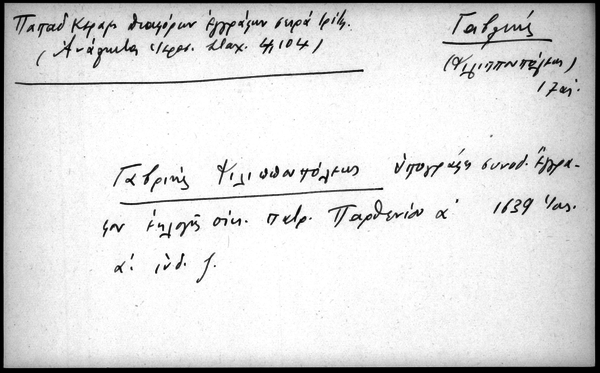 Παπαδ Κεραμ διαφόρων ἐγγράφων σειρά τρίτη.
(Ἀνάλεκτα Ἱερος. Σταχ. 4, 104)
Γαβριήλ
(Φιλιππουπόλεως)
17 αἰ.
Γαβριήλ Φιλιππουπόλεως ὑπογράφει συνοδ. ἔγγρα-
φον ἐκλογῆς οἰκ. πατρ. Παρθενίου α' 1639 Ἰας.
α'. ἰνδ. ζ.